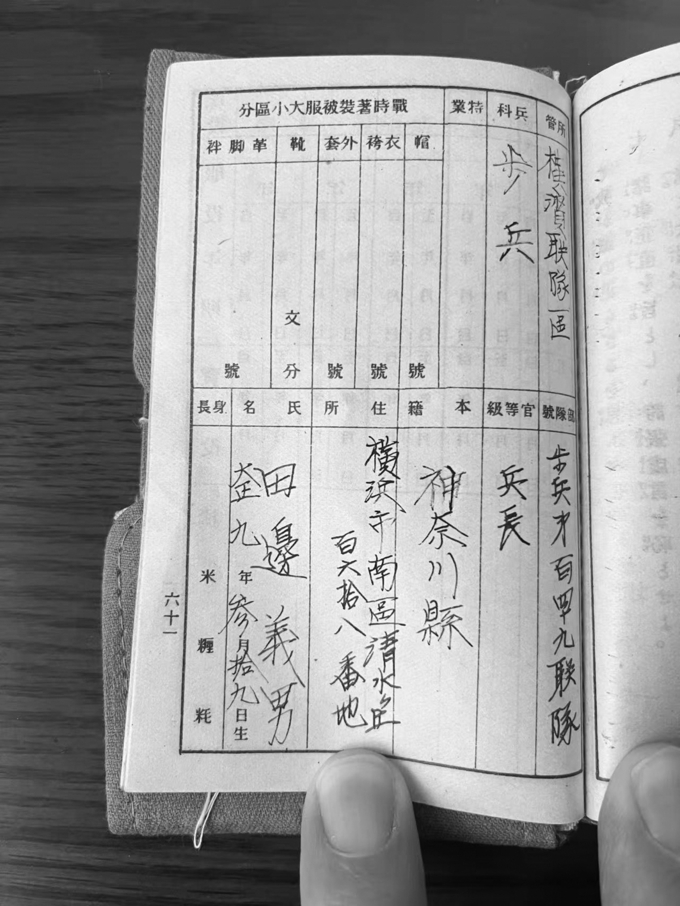 所管
横濱联隊區
兵科
歩兵
特業
戰時著裝被服大小區分
帽
號
衣袴
號
外套
號
靴
文
分
革脚袢
號
部隊號
歩兵才百四九联隊
官等級
兵長
本籍
神奈川縣
住所
横浜市南區清水丘
百六拾八番地
氏名
田邊義男
九年参月拾九日生
身長
米糎粍
六十一